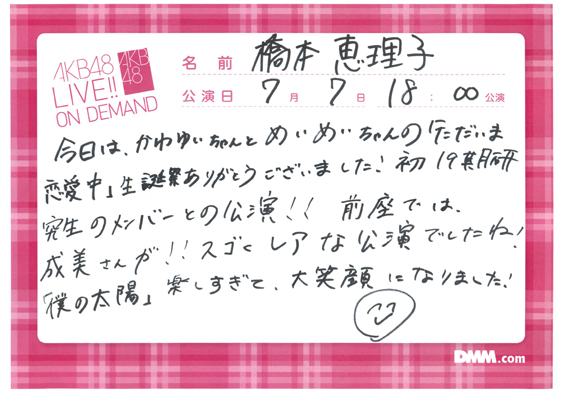 AKB48
LIVE!!
ON DEMAND
AKB
48
名前 橋本恵理子
公演日 7月7日 18:00公演
今日は、かわゆいちゃんとめいめいちゃんの「ただいま
恋愛中」生誕祭ありがとうございました!初19期研
究生のメンバーとの公演!!前座では、
成美さんが!!スゴくレアな公演でしたね!
「僕の太陽」楽しすぎて、大笑顔になりました!
DMM.com